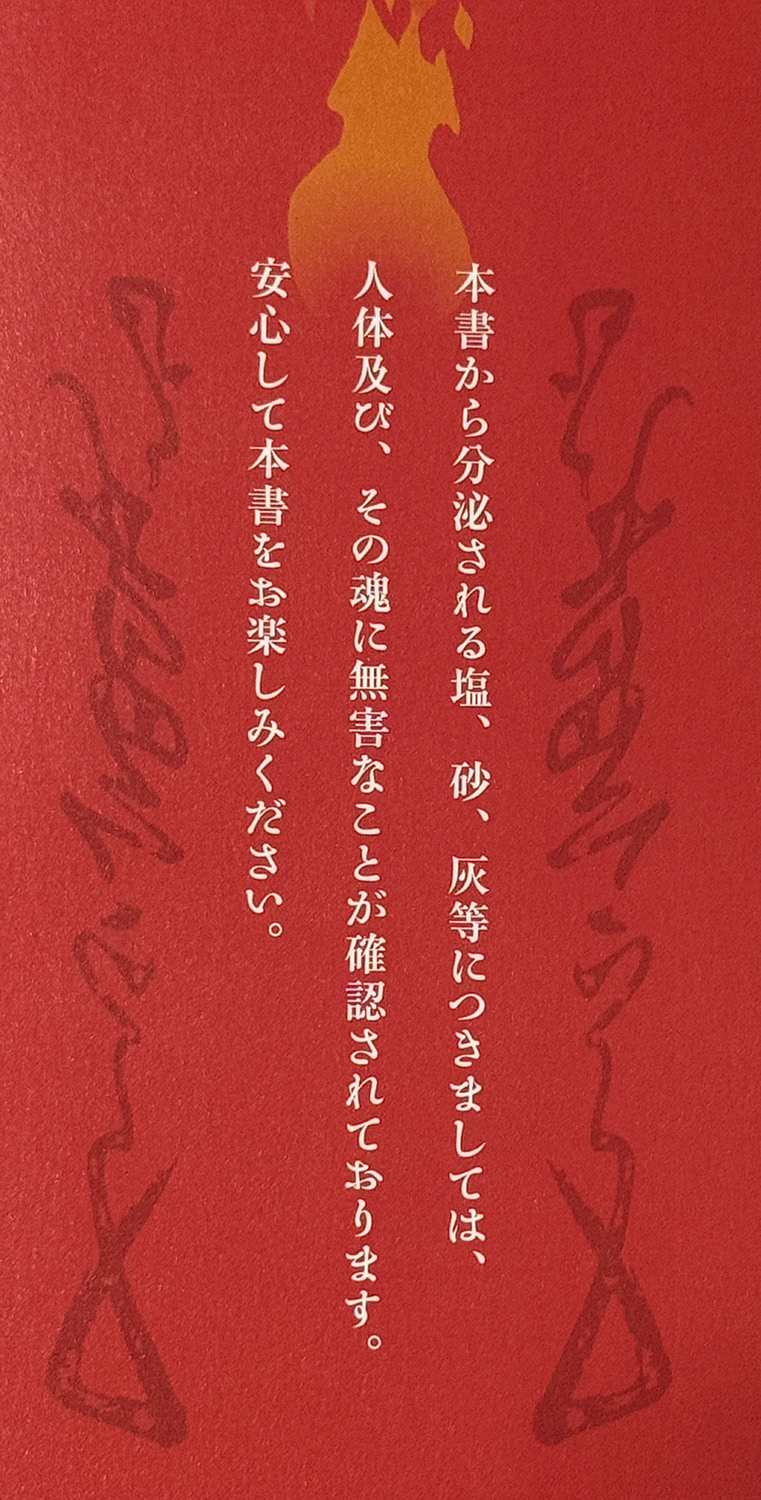 本書から分泌される塩、砂、灰等につきましては、
人体及び、その魂に無害なことが確認されております。
安心して本書をお楽しみください。